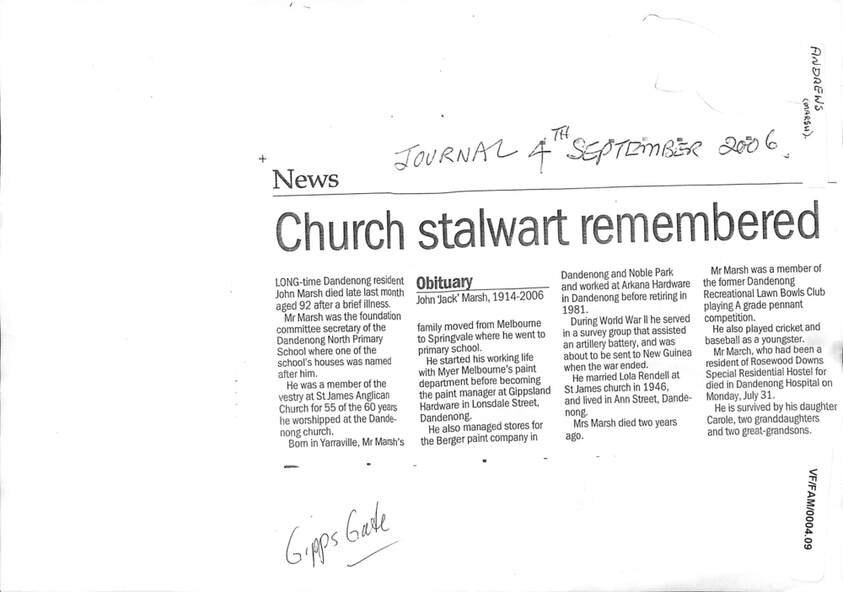 ANDREWS
(MARSH)
JOURNAL 4TH SEPTEMBER 2006.
News
Church stalwart remembered
LONG-time Dandenong resident
John Marsh died late last month
aged 92 after a brief illness.
Mr Marsh was the foundation
committee secretary of the
Dandenong North Primary
School where one of the
school's houses was named
after him.
He was a member of the
vestry at St James Anglican
Church for 55 of the 60 years
he worshipped at the Dande-
nong church.
Born in Yarraville, Mr Marsh's
Obituary
John 'Jack' Marsh, 1914-2006
family moved from Melbourne
to Springvale where he went to
primary school.
He started his working life
with Myer Melbourne's paint
department before becoming
the paint manager at Gippsland
Hardware in Lonsdale Street,
Dandenong.
He also managed stores for
the Berger paint company in
Dandenong and Noble Park
and worked at Arkana Hardware
in Dandenong before retiring in
1981.
During World War II he served
in a survey group that assisted
an artillery battery, and was
about to be sent to New Guinea
when the war ended.
He married Lola Rendell at
St James church in 1946,
and lived in Ann Street, Dande-
nong.
Mrs Marsh died two years
ago.
Mr Marsh was a member of
the former Dandenong
Recreational Lawn Bowls Club
playing A grade pennant
competition.
He also played cricket and
baseball as a youngster.
Mr March, who had been a
resident of Rosewood Downs
Special Residential Hostel for
died in Dandenong Hospital on
Monday, July 31.
He is survived by his daughter
Carole, two granddaughters
and two great-grandsons.
VF/FAM/0004.09
Gipps Gate